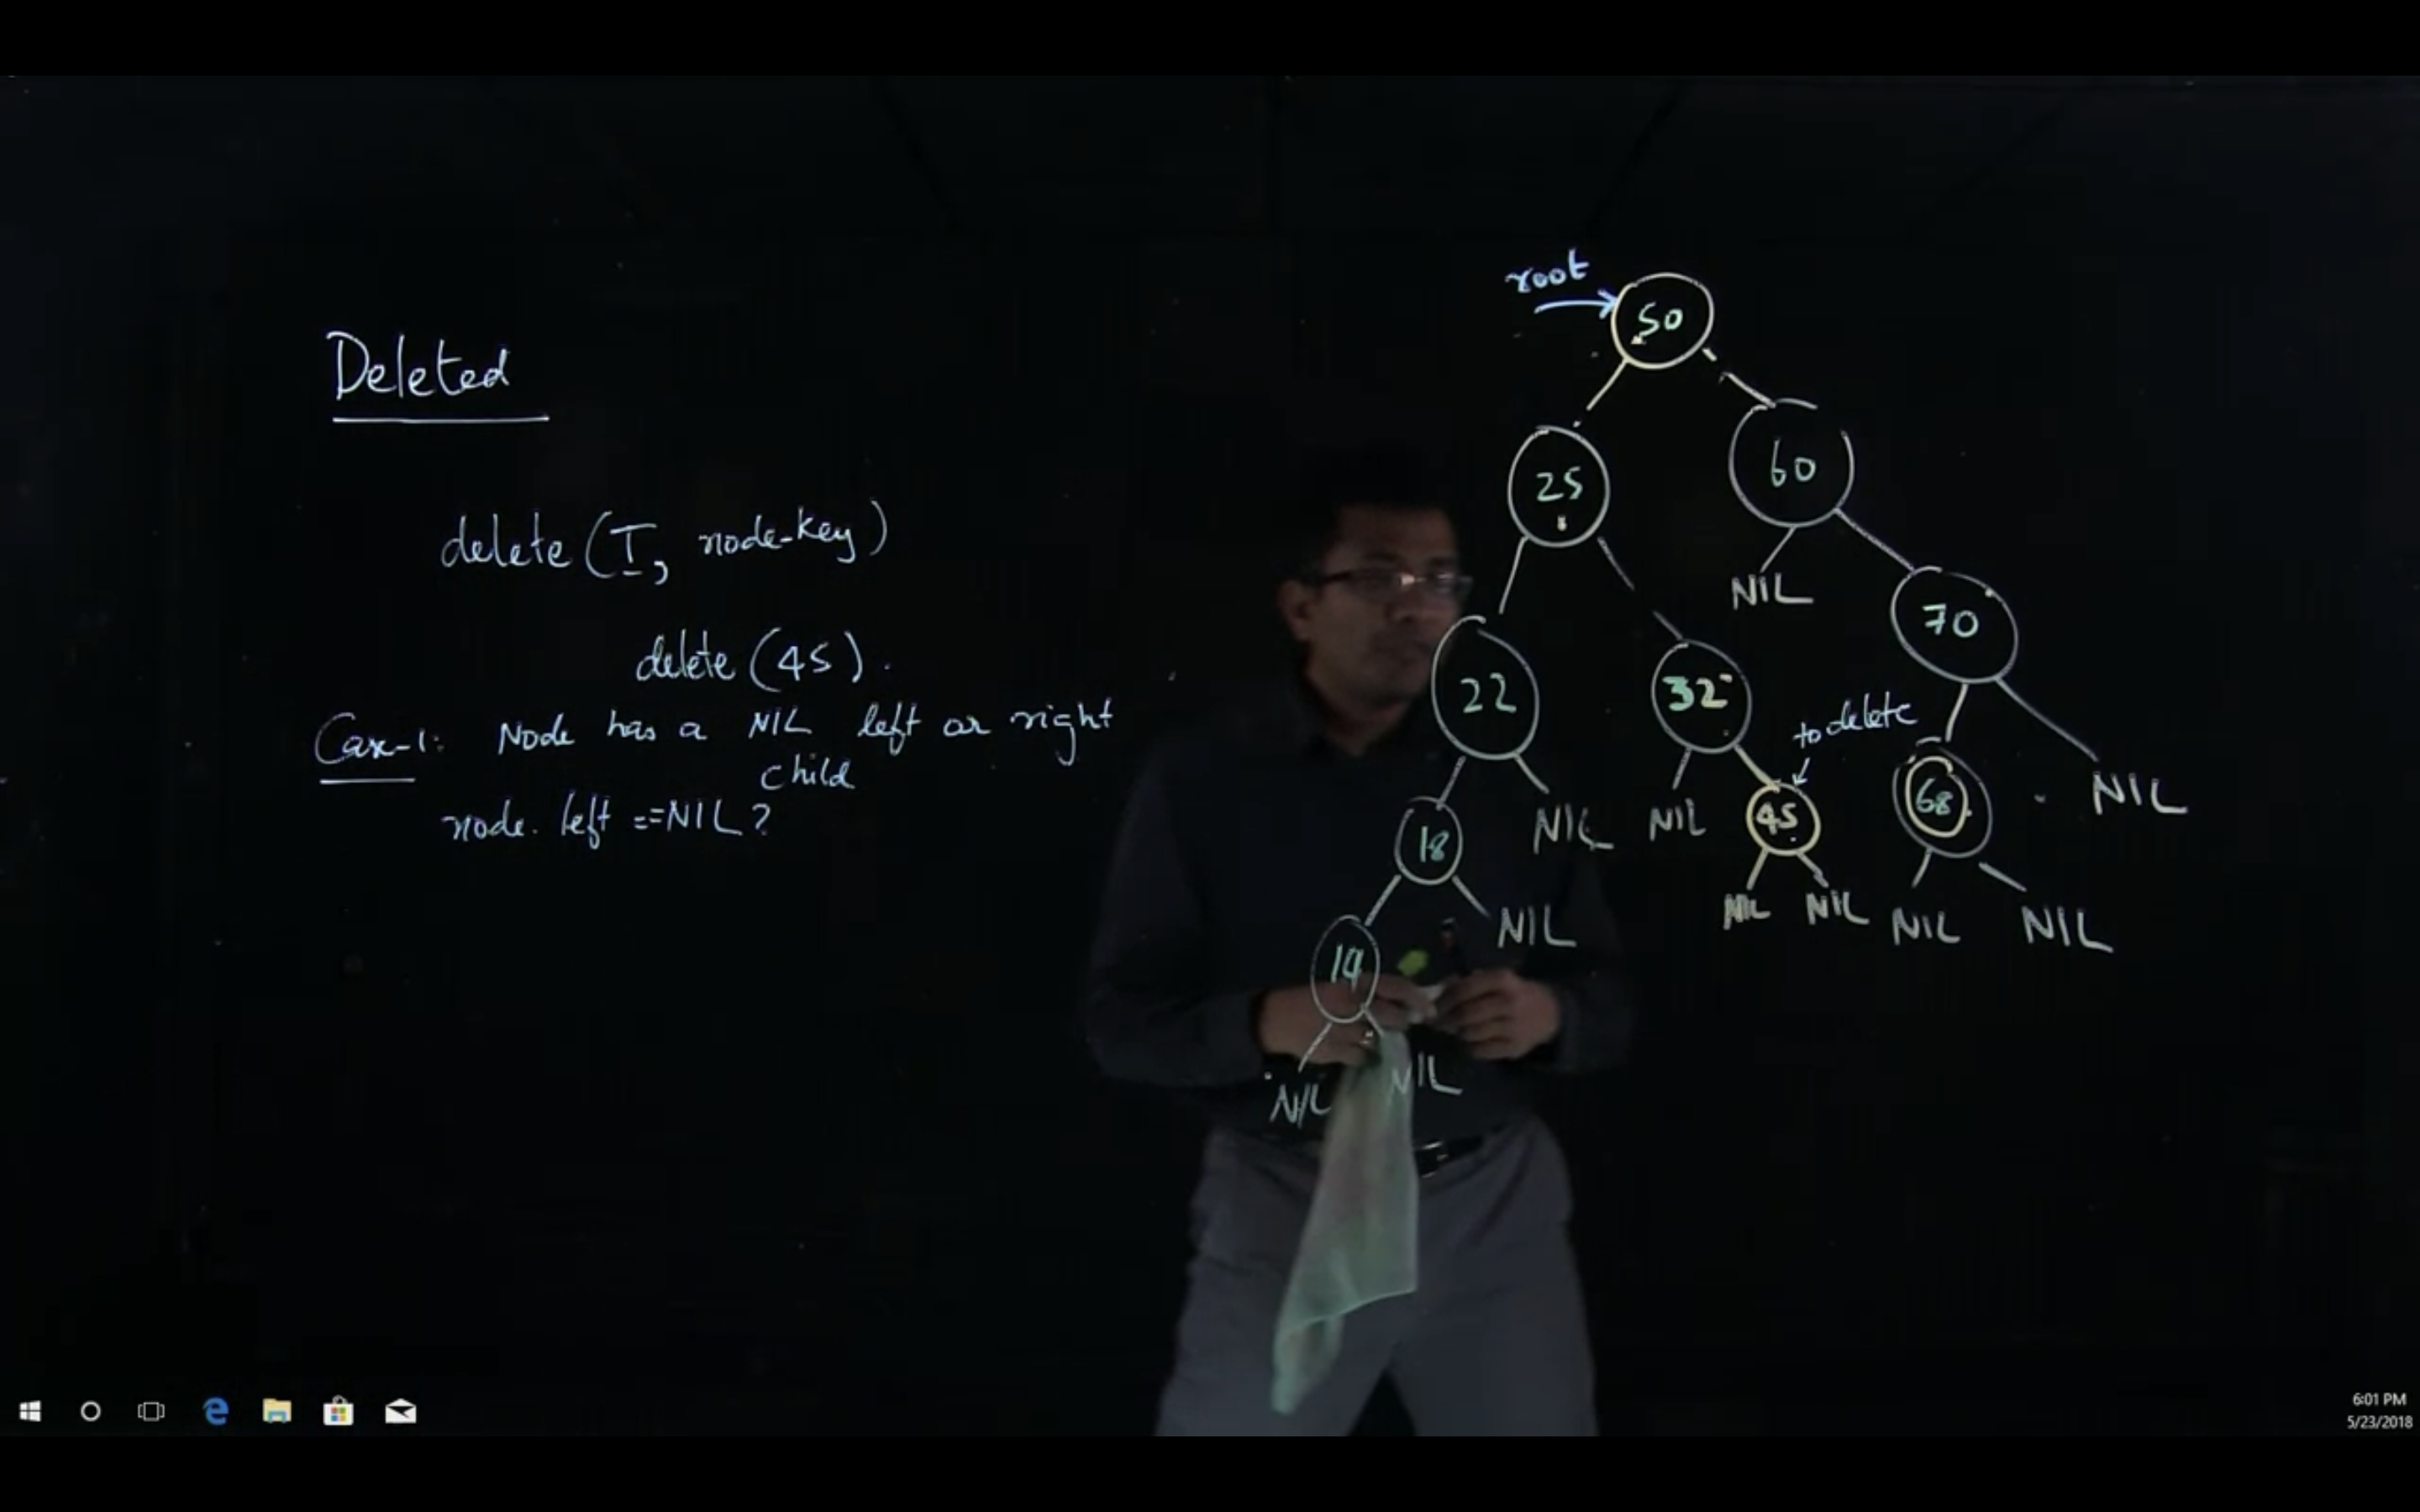 Deleted
delete (T, node-key)
delete (45).
Case-1: Node has a NIL left or right
child
node.left ==NIL?
root
50
25
60
NIL
70
22
32
to delete
18
NIL
NIL
45
68
NIL
NIL
NIL
NIL
NIL
NIL
NIL
NIL
6:01 PM
5/23/2018